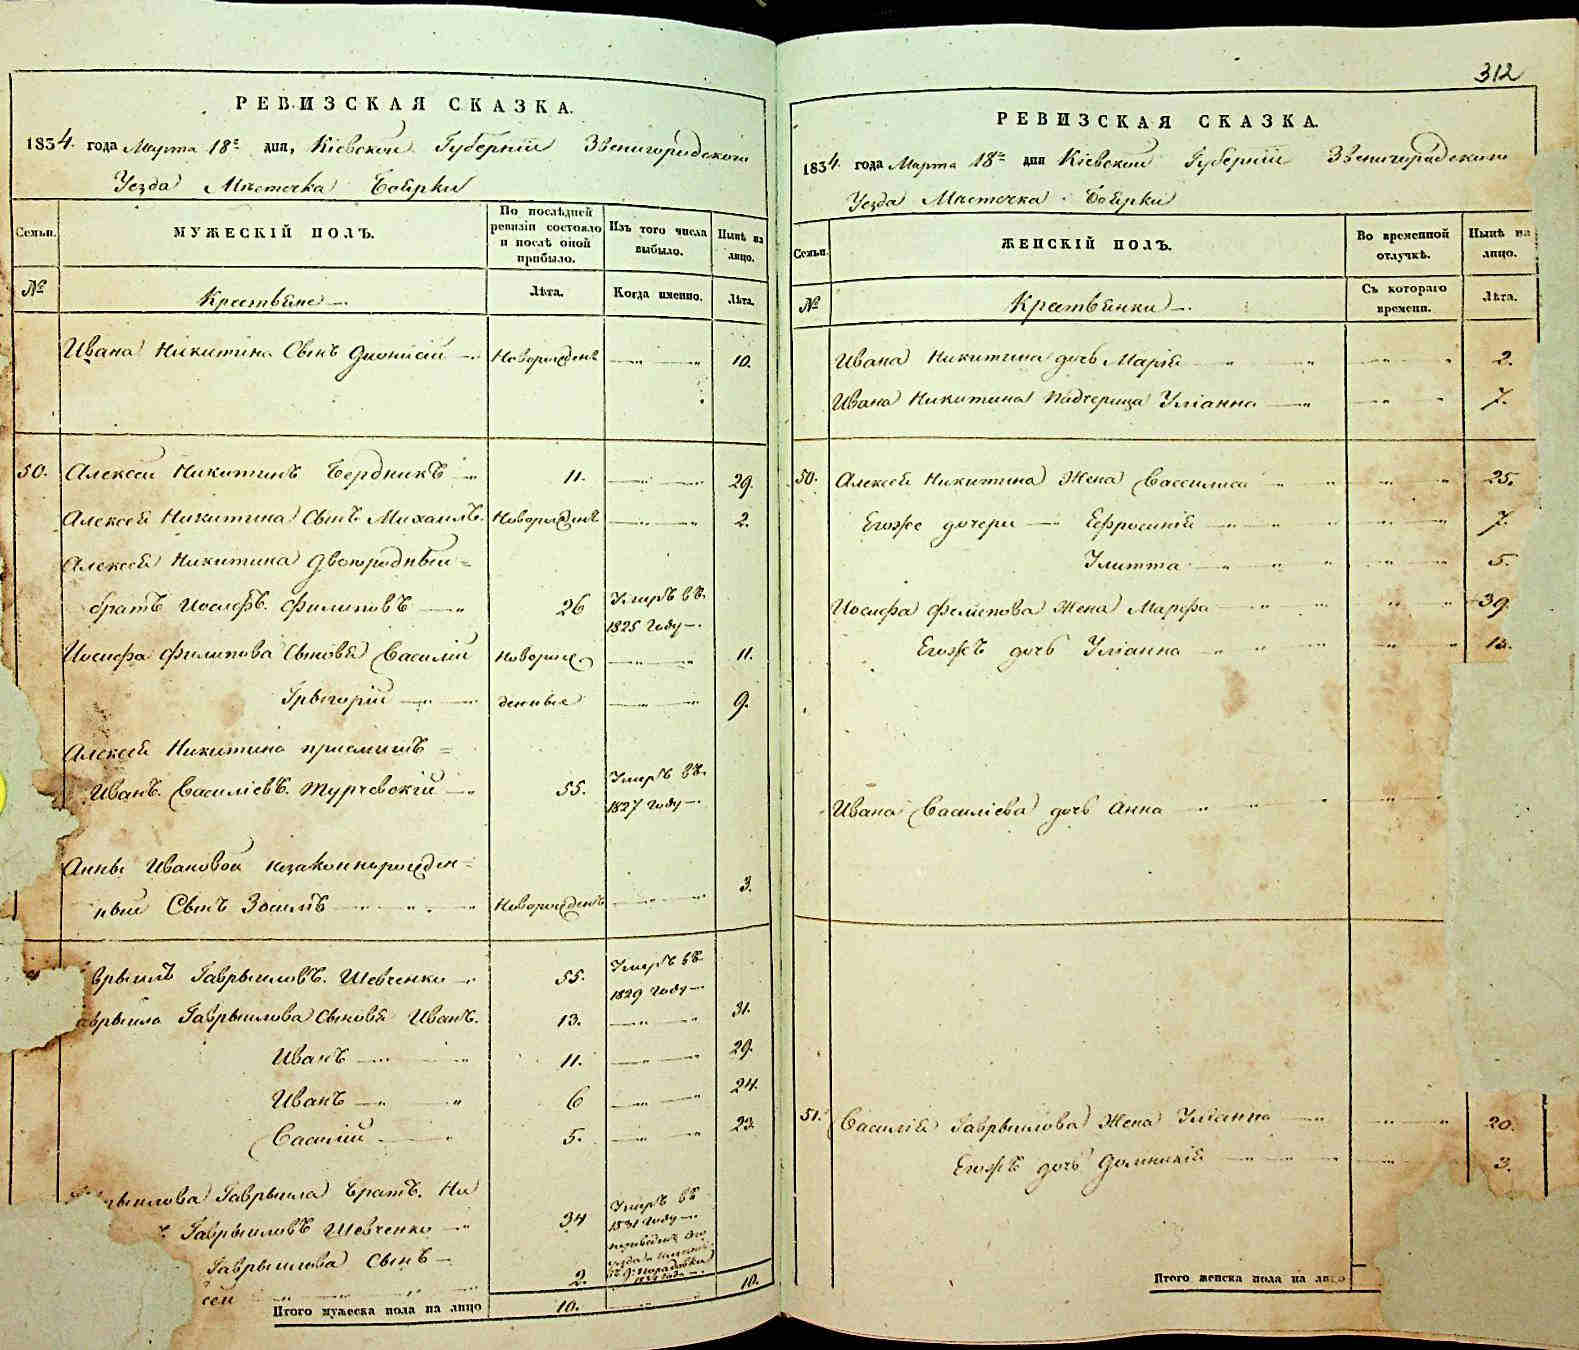 РЕВИЗСКАЯ СКАЗКА.
1834. года Марта 18º дня, Кіевской Губерніи Звенигородского
Уезда Мѣстечка Боярки
Семьи.
МУЖЕСКІЙ ПОЛЪ.
По послѣдней ревизіи состояло и послѣ оной прибыло.
Изъ того числа выбыло.
Нынѣ на лицо.
№
Крестьяне
Лѣта.
Когда именно.
Лѣта.
Ивана Никитина Сынъ Дионисій Новорожденъ 10.
50. Алексей Никитинъ Бердникъ 11. 29.
Алексея Никитина Сынъ Михаилъ. Новорожденъ 2.
Алексея Никитина двоюродный
братъ Иосифъ Филиповъ 26 Умеръ въ 1825 Году
Иосифа Филипова Сыновья Василій Новорож 11.
Грыгорій денные 9.
Алексея Никитина приемышъ
Иванъ Василіевъ Турчевскій 55. Умеръ въ 1827 Году
Анны Ивановой незаконнорожден
ный Сынъ Зосимъ Новорожденъ 3.
врыилъ Гаврыиловъ. Шевченко 55. Умеръ въ 1829 Году
аврыила Гаврыилова Сыновья Иванъ. 13. 31.
Иванъ 11. 29.
Иванъ 6 24.
Василій 5. 23.
рыилова Гаврыила Братъ. Ни
Гаврыиловъ Шевченко 34 Умеръ въ 1831 Году
Гаврыилова Сынъ
сей 2.
Итого мужеска пола на лицо 10. 10.
312
РЕВИЗСКАЯ СКАЗКА.
1834. года Марта 18º дня Кіевской Губерніи Звенигородского
Уезда Мѣстечка Боярки
Семьи.
ЖЕНСКІЙ ПОЛЪ.
Во временной отлучкѣ.
Нынѣ на лицо.
№
Крестьянки
Съ котораго времени.
Лѣта.
Ивана Никитина дочь Марія 2.
Ивана Никитина Падчерица Уліанна 7.
50. Алексея Никитина Жена Вассилиса 25.
Егожъ дочери Ефросинія 7.
Улитта 5.
Иосифа Филипова Жена Марфа 39.
Егожъ дочь Уліанна
Ивана Василіева дочь Анна
51. Василія Гаврыилова Жена Уліанна 20.
Егожъ дочь Домникія 3.
Итого женска пола на лицо